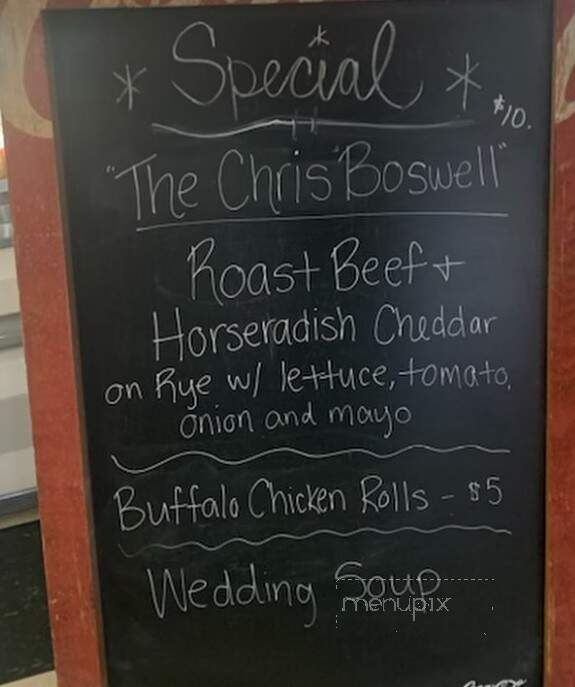 * Special *
$10.
"The Chris "Boswell"
Roast Beef +
Horseradish Cheddar
on Rye w/ lettuce, tomato,
onion and mayo
Buffalo Chicken Rolls - $5
Wedding Soup
menupix